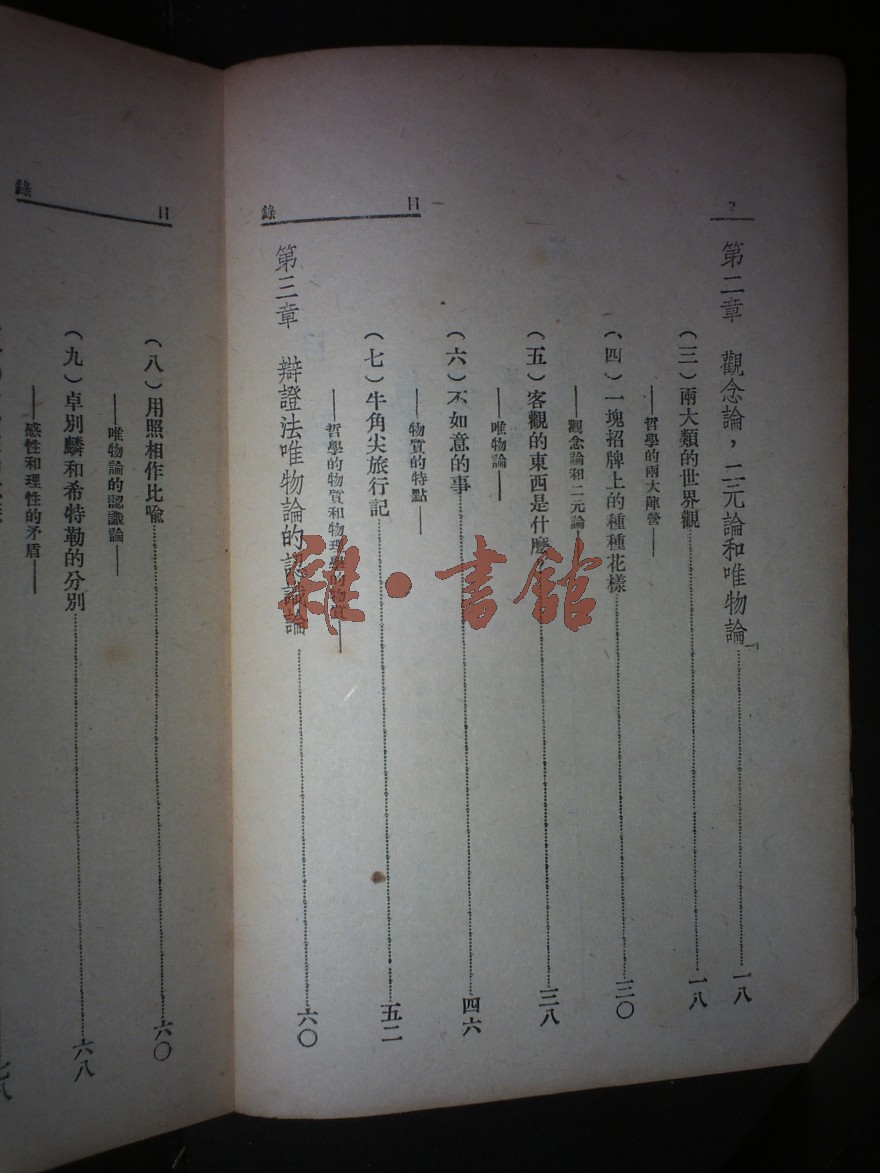 2
目錄
第二章 觀念論，二元論和唯物論……一八
（三）兩大類的世界觀……一八
——哲學的兩大陣營——
（四）一塊招牌上的種種花樣……三〇
——觀念論和二元論——
（五）客觀的東西是什麼……三八
——唯物論——
（六）不如意的事……四六
——物質的特點——
（七）牛角尖旅行記……五二
——哲學的物質和物理學的物質——
第三章 辯證法唯物論的認識論……六〇
雜·書館
目錄
（八）用照相作比喩……六〇
——唯物論的認識論——
（九）卓別麟和希特勒的分別……六八
——感性和理性的矛盾——